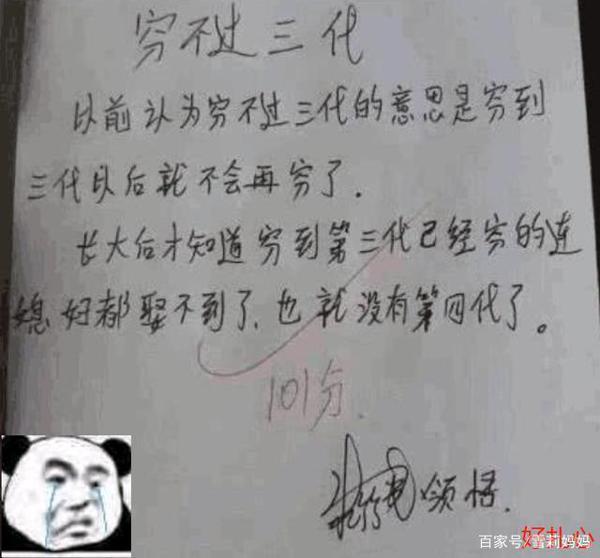 穷不过三代
以前认为穷不过三代的意思是穷到
三代以后就不会再穷了.
长大后才知道穷到第三代已经穷的连
媳妇都娶不到了,也就没有第四代了。
101分.
领悟.
好扎心
百家号/雪莉妈妈